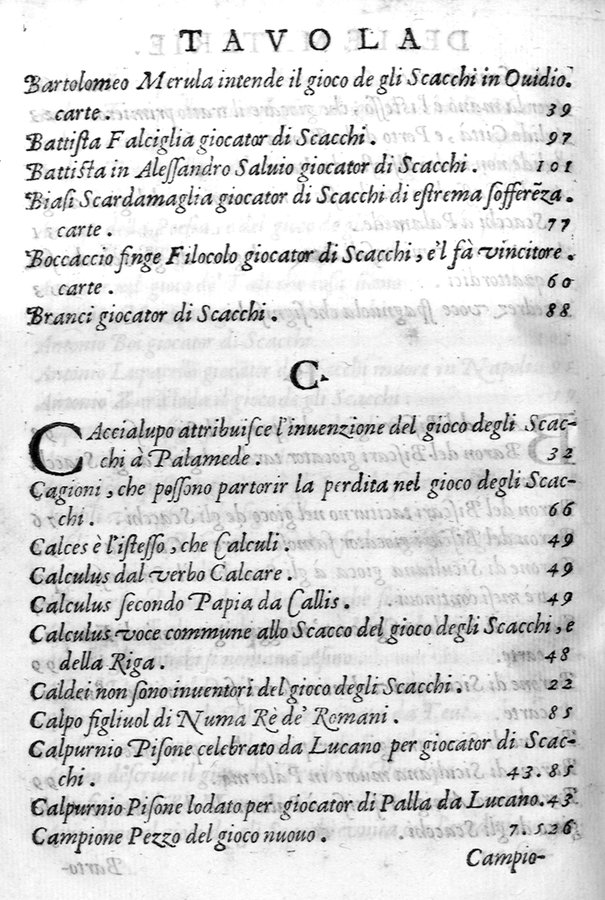 TAVOLA
Bartolomeo Merula intende il gioco de gli Scacchi in Ouidio.
carte. 39
Battiſta Falciglia giocator di Scacchi. 97
Battiſta in Aleſſandro Saluio giocator di Scacchi. 101
Biaſi Scardamaglia giocator di Scacchi di eſtrema ſofferẽza.
carte. 77
Boccaccio finge Filocolo giocator di Scacchi, e'l fà vincitore.
carte. 60
Branci giocator di Scacchi. 88
C.
CAccialupo attribuiſce l'inuenzione del gioco degli Scac-
chi à Palamede. 32
Cagioni, che poſſono partorir la perdita nel gioco degli Scac-
chi. 66
Calces è l'iſteſſo, che Calculi. 49
Calculus dal verbo Calcare. 49
Calculus ſecondo Papia da Callis. 49
Calculus voce commune allo Scacco del gioco degli Scacchi, e
della Riga. 48
Caldei non ſono inuentori del gioco degli Scacchi. 22
Calpo figliuol di Numa Rè de' Romani. 85
Calpurnio Piſone celebrato da Lucano per giocator di Scac-
chi. 43.85
Calpurnio Piſone lodato per giocator di Palla da Lucano. 43
Campione Pezzo del gioco nuouo. 7.126
Campio-